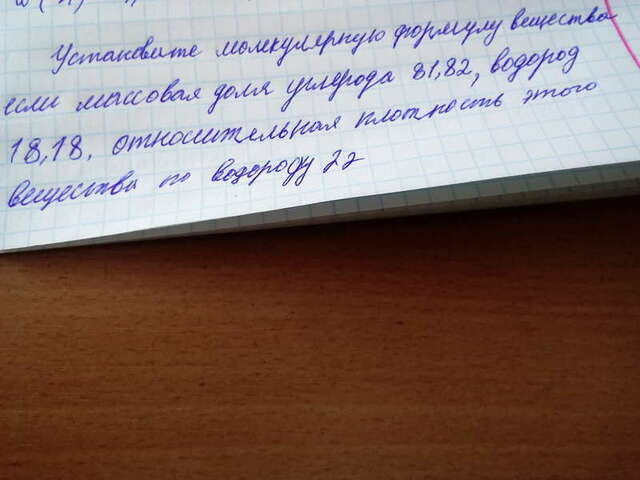 Установите молекулярную формулу вещества
если массовая доля углерода 81,82, водород
18,18, относительная плотность этого
вещества по водороду 22